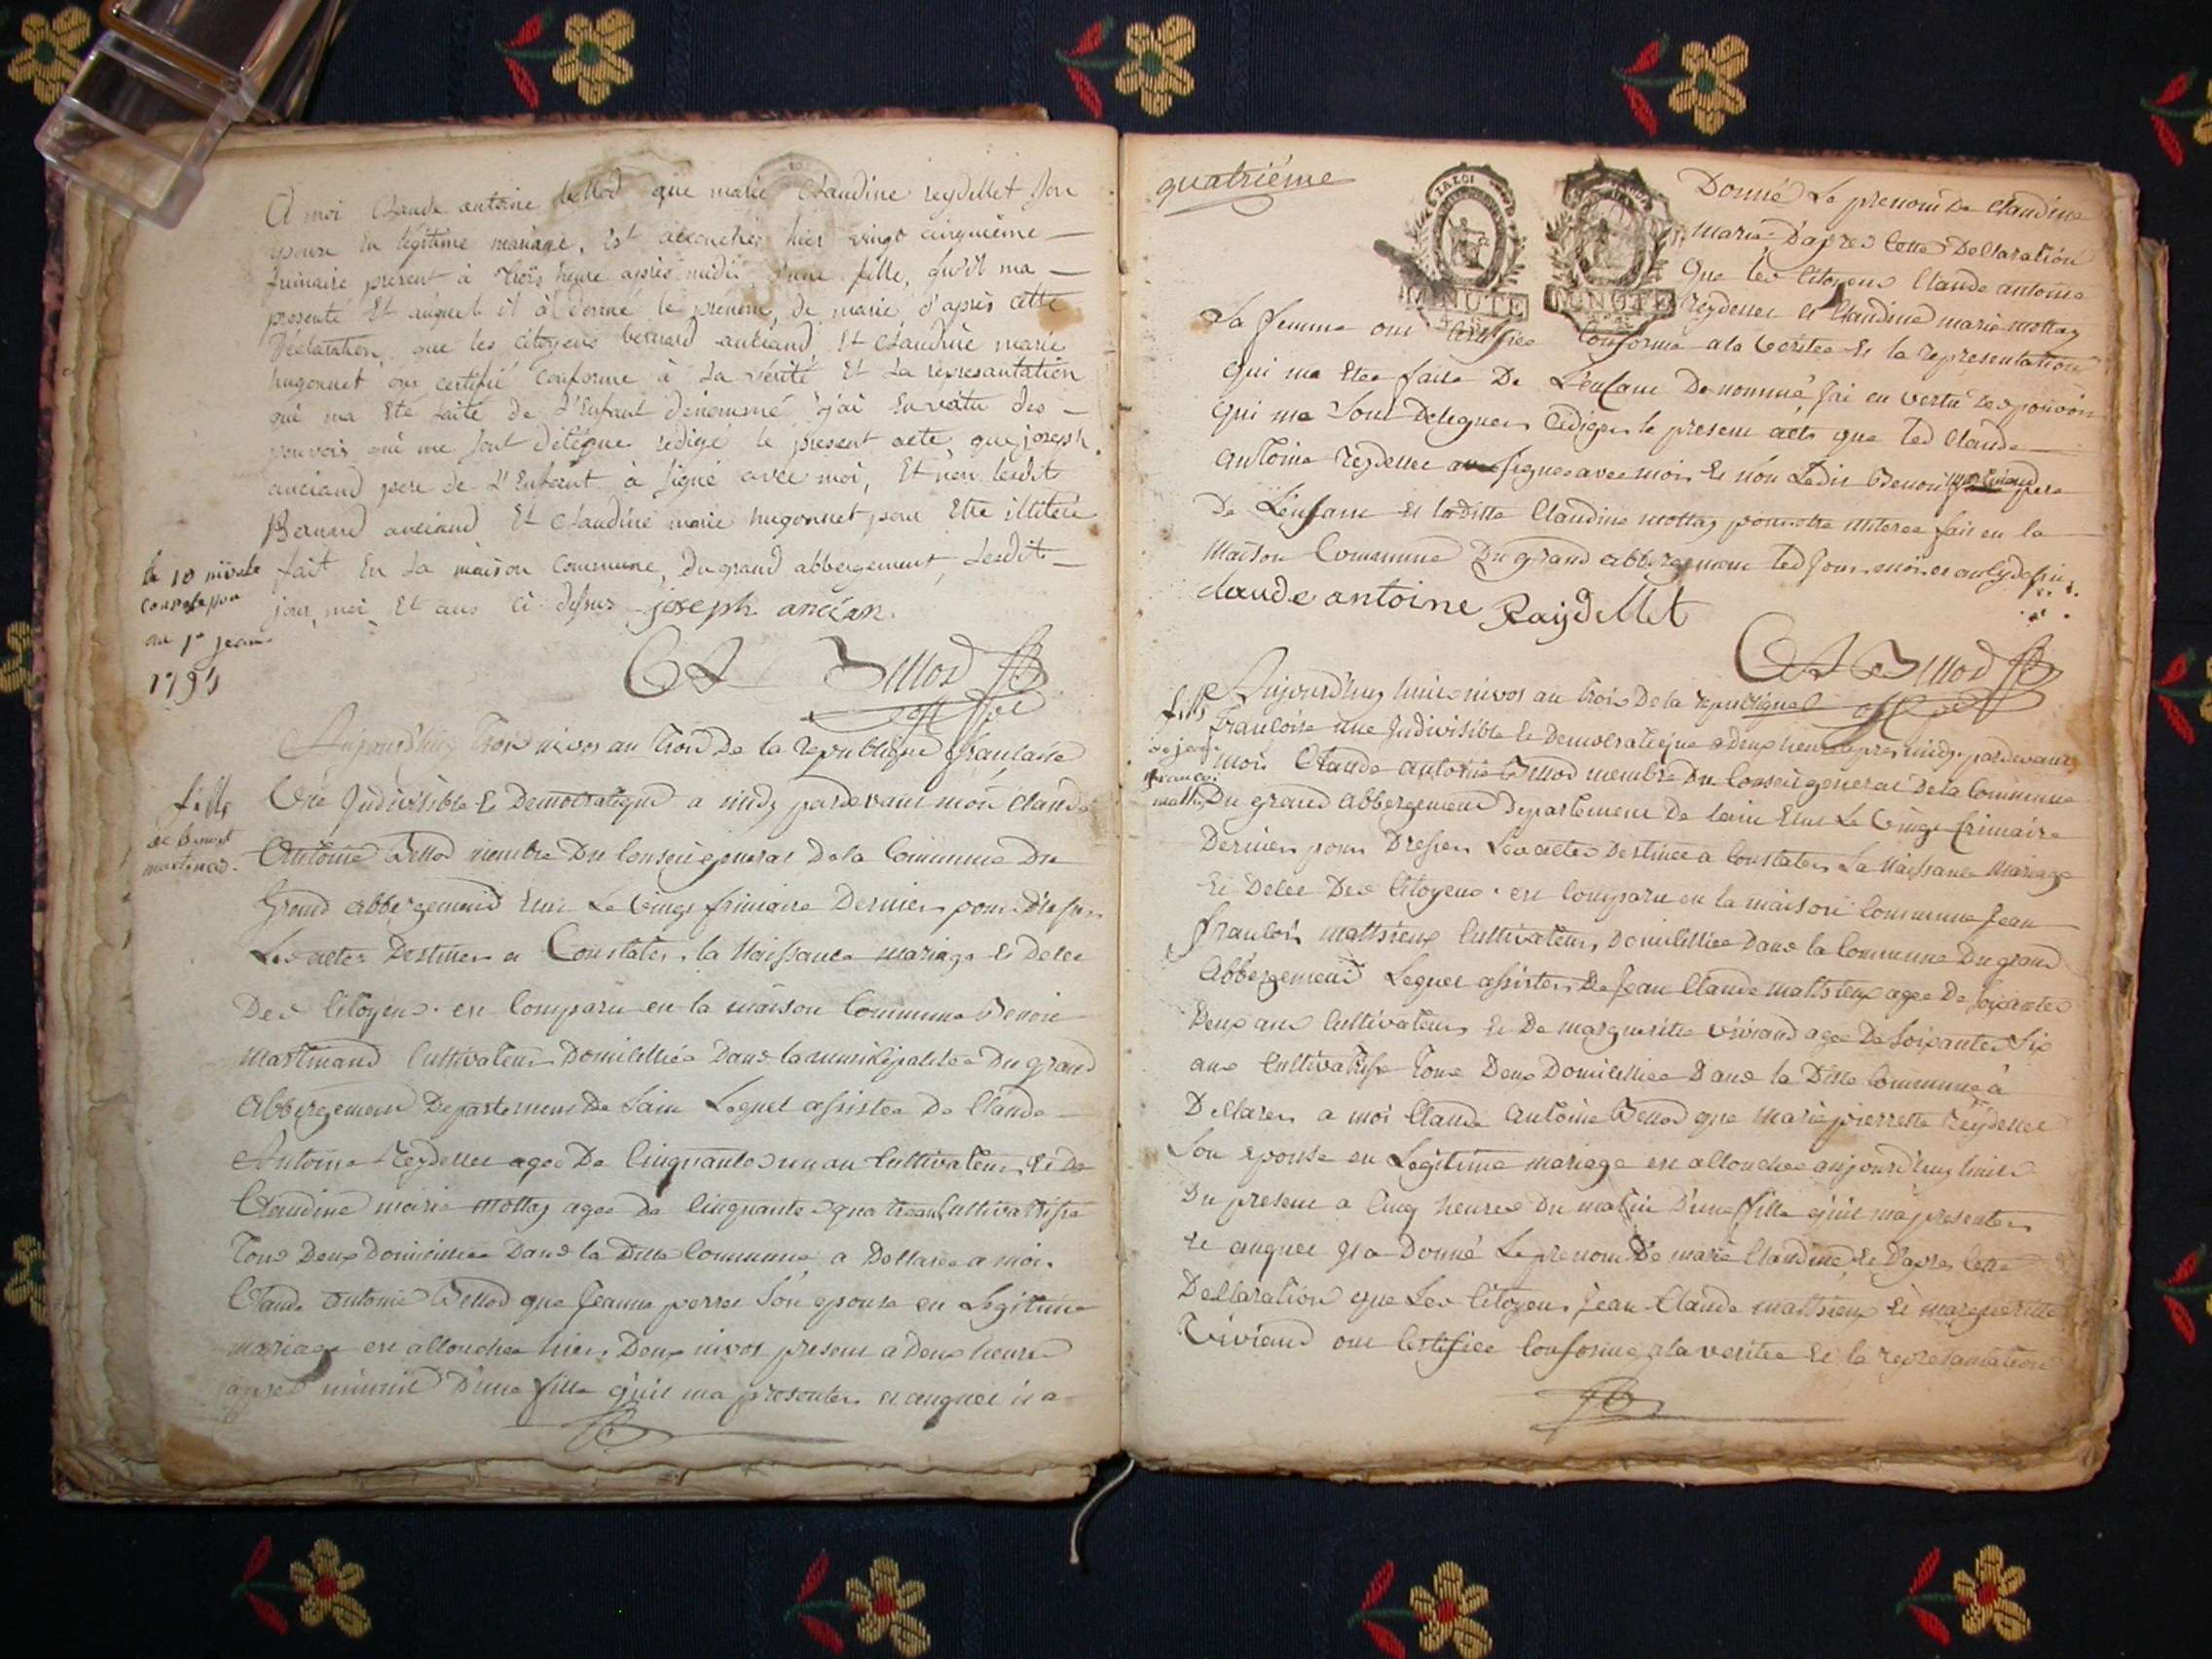 A moi Claude antoine bellod que marie Claudine reydellet son
epouse en legitime mariage, est accouchée hier vingt cinquieme
frimaire present à trois heure après midi, d'une fille, qu'il ma
presenté Et auquel il à donné le prenom, de marie d'après cette
Déclaration, que les citoyens bernard anciand Et Claudine marie
hugonnet ont certifié conforme à la verité Et La represantation
qui ma Ete faite de L'Enfant dénommé j'ai En vertu des
pouvoirs qui me sont délégué redigé le present acte que joseph
anciand pere de L'Enfant à signé avec moi, Et non ledit
Bernard anciand Et Claudine marie hugonnet pour Etre illiteré
fait En La maison Commune, Du grand abbergement, Lesdit
jour, moi Et ans ci-desus joseph ancian.
le 10 nivose
au 1er jean
1795
CA Bellod
Aujourd'huy trois nivos an trois De la republique francaise
Une Indivisible Et Democratique a midy pardevant moi Claude
fille
de benoit
martinand.
Antoine Bellod membre Du Conseil general De la Commune Du
Grand abbergement Elue Le vingt frimaire Dernier pour Dresser
Les actes Destiner a Constater la Naissance mariage Et Deces
Des Citoyens. est Comparu en la maison Commune Benoit
Martinand Cultivateur Domicilliée Dans la municipalitee Du grand
Abbergement Departement De Lain Lequel assistee De Claude
Antoine Reydellet agee De Cinquante un an Cultivateur Et De
Claudine marie mottaz agee De Cinquante quatre an Cultivatrisse
tous Deux Domicilliee Dans la Ditte Commune a Declaree a moi
Claude Antoine Bellod que Jeanne perret Son epouse en Legitime
mariage est accouchee hier Deux nivos present a Deux heures
apres minuit D'une fille qu'il ma presenter et auquel il a
quatriéme
LA LOI
MINUTE MINUTE
Donné Le prenom De Claudine
Marie D'apres Cette Declaration
Que Les Citoyens Claude antoine
Reydellet et Claudine marie mottaz
La femme ont Certifiee Conforme a la veritee Et la representation
Qui ma Etee faite De L'enfant Denommé, J'ai en vertu des pouvoir
Qui me Sont Deleguer Rediger le present acte que led Claude
Antoine Reydellet a signee avec moi Et non Ledit Benoit martinand pere
De L'enfant Et laditte Claudine mottaz pour etre illiteree fait en la
Maison Commune Du grand abbergement led Jour mois et an Cy dessus
claude antoine Raydellet
CA Bellod
Aujourd'huy huit nivos an trois De la republique
fille
de jean
francoi
math
francoise une Indivisible Et Democratique a Deux heure apres midy pardevant
moi Claude antoine Bellod membre Du Conseil general De la Commune
Du grand abbergement Departement De lain Elue Le vingt frimaire
Dernier pour Dresser Les actes Destinee a Constater La Naissance Mariage
Et Deces Des Citoyens. est Comparu en la maison Commune Jean
francois mathieux Cultivateur, Domicilliee Dans la Commune Du grand
Abbergement Lequel assister De Jean Claude mathieux agee De soixante
Deux ans Cultivateur Et De margueritte viviand agee De Soixante Six
ans Cultivatrise tous Deux Domicilliee Dans la Ditte Commune à
Declarer a moi Claude Antoine Bellod que Marie pierrette Reydellet
Son epouse en Legitime mariage est accouchee aujourd'huy huit
Du present a Cinq heures Du matin D'une fille quil ma presenter
Et auquel Il a Donné Le prenom De marie Claudine, Et D'apres Cette
Declaration que Les Citoyens Jean Claude mathieux Et margueritte
Viviand ont Certifiee Conforme a la veritee Et la represantation